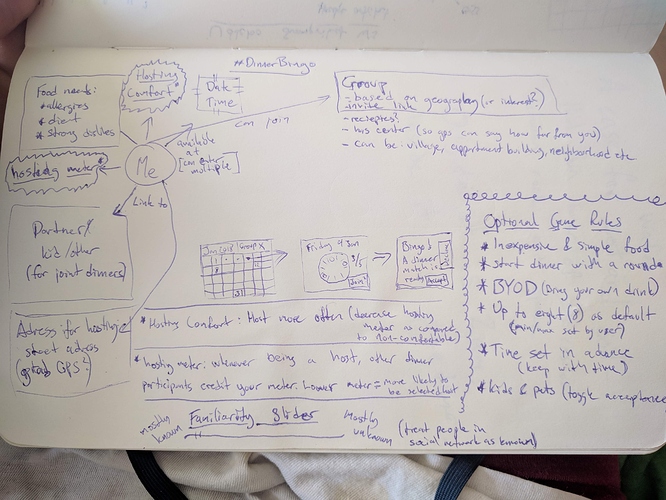 #DinnerBingo
Food needs:
*allergies
*diet
*strong dislikes
Hosting
Comfort*
Date
Time
Group
- based on geography (or interest?)
invite link
- reciepies?
- has center (so gps can say how far from you)
- can be: village, appartment building, neighbourhood etc
can join
available
at
[can enter
multiple]
Me
hosting meter*
Link to
Partner/
kid/other
(for joint dinners)
Adress for hosting
street adress
GPS
Jan 2018 | Group X
Friday 9 Jan
3/5
Join!
Bingo!
A dinner
match is
ready
Accept
Decline
*Hosting Comfort: Host more often (decrease hosting
meter as compared
to non-comfortable)
*hosting meter: whenever being a host, other dinner
participants credit your meter. Lower meter = more likely to
be selected host
Familiarity Slider
mostly
known
mostly
unknown
(treat people in
social network as known)
Optional Game Rules
* Inexpensive & simple food
* Start dinner with a round
* BYOD (bring your own drink)
* Up to eight (8) as default
(min/max set by user)
* Time set in advance
(keep with time)
* kids & pets (toggle acceptance